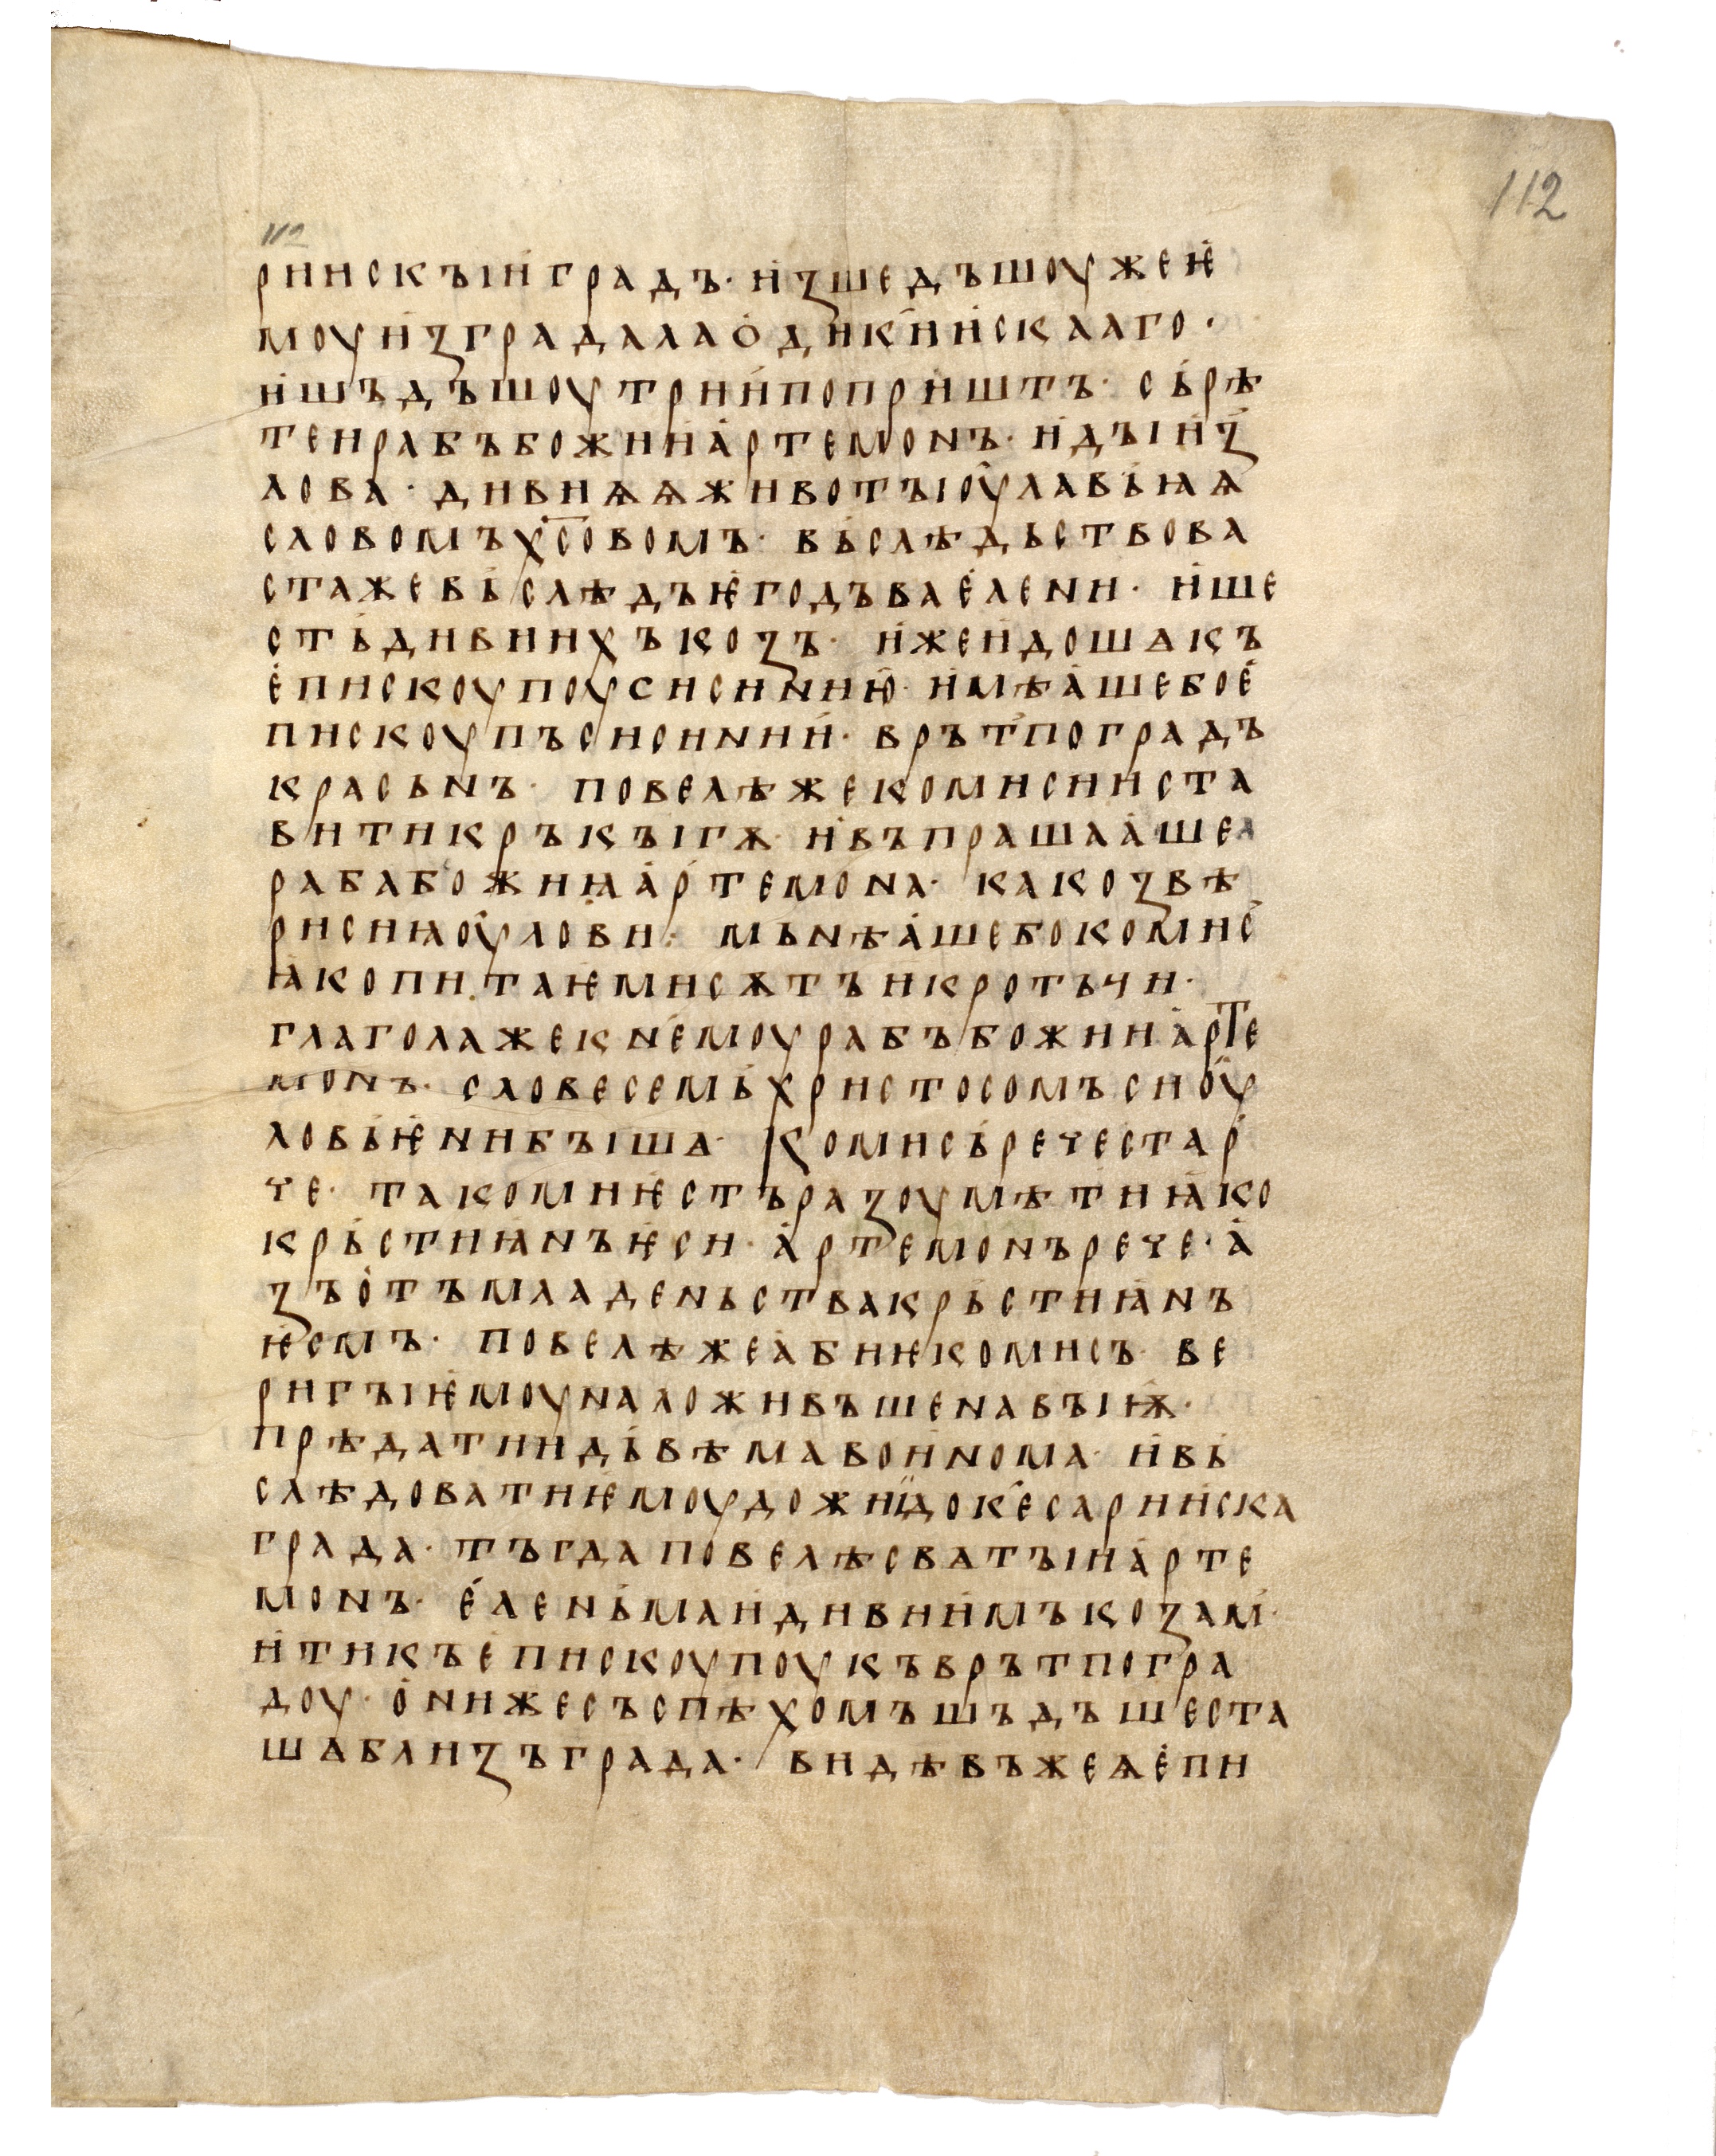 112
112
риискъіи градъ· ишедъшоу же ѥ
моу из града лаодикиискааго·
ишъдъшоу три и поприштъ· сърѣ
те и рабъ божии артемонъ· идъі из
лова· дивиѩѩ животъі оулавьꙗѩ
словомъ х҃совомъ· въслѣдьствова
ста же въ слѣдъ ѥго дъва елени· и ше
сть дивиихъ козъ· иже идошѧ къ
епискоупоу сисинию· имѣаше бо е
пискоупъ сисинии· врътпоградъ
красьнъ· повелѣ же комис и иста
вити кръкъігѫ· и въпрашааше
раба божиꙗ артемона· како звѣ
ри сиꙗ оулови· мьнѣаше бо комис
ꙗко питаѥми сѫтъ и кротъчи·
глагола же к немоу рабъ божии арте
монъ· словесемь христосомъ си оу
ловьѥни бъішѧ· Комисъ рече стар
че· тако ми ѥстъ разоумѣти ꙗко
крьстиꙗнъ ѥси· артемонъ рече· а
зъ отъ младеньства крьстиꙗнъ
ѥсмъ· повелѣ же абиѥ комисъ· ве
ригъі ѥмоу наложивъше на въіѭ·
прѣдати и дьвѣма воинома· и вь
слѣдовати ѥмоу дожи и до кесарииска
града· тъгда повелѣ свѧтъіи арте
монъ· еленьма и дивиимъ козам·
ити къ епискоупоу къ врътпогра
доу· они же съ спѣхомъ шъдъше ста
шѧ близъ града· видѣвъ же ѩ епи